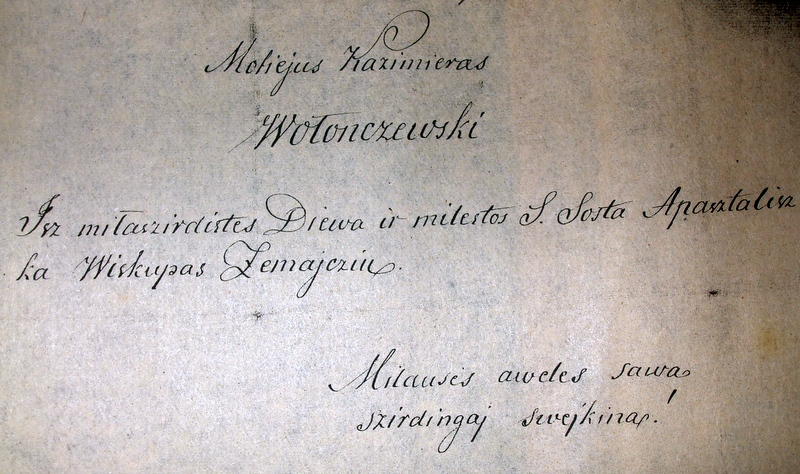 Motiejus Kazimieras
Wołonczewski
Isz miłaszirdistes Diewa ir milestos S. Sosta Apasztalisz
ka Wiskupas Żemajcziu.
Milausės aweles sawa
szirdingaj swejkina!